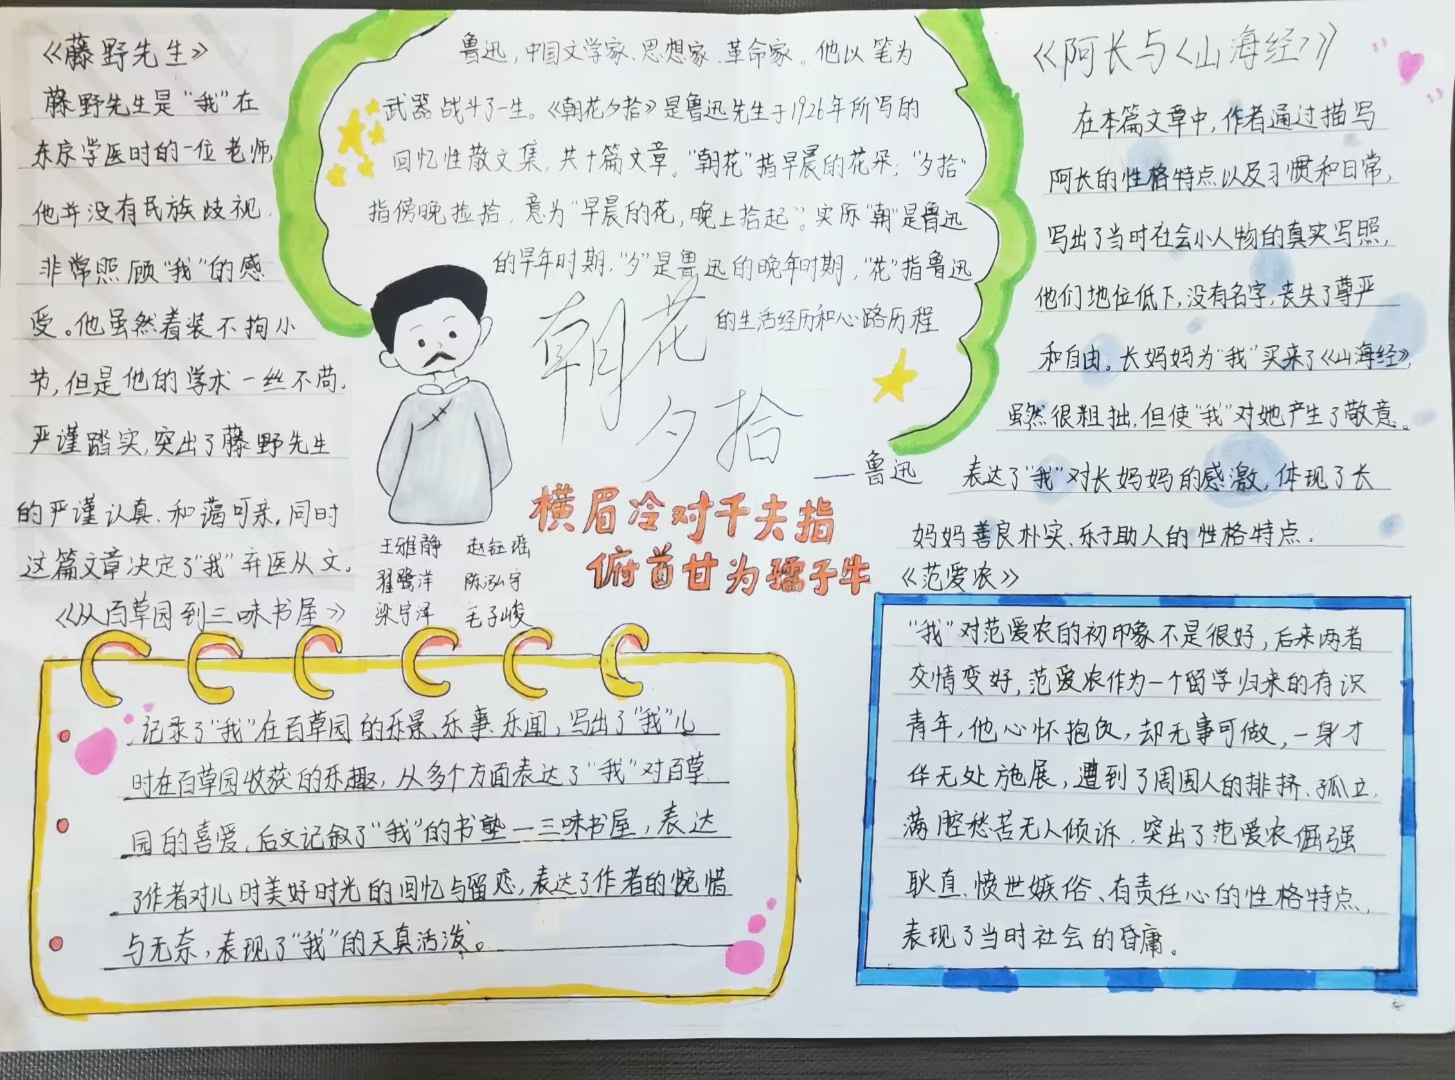 《藤野先生》
藤野先生是“我”在
东京学医时的一位老师,
他并没有民族歧视,
非常照顾“我”的感
受。他虽然着装不拘小
节,但是他的学术一丝不苟,
严谨踏实,突出了藤野先生
的严谨认真、和蔼可亲,同时
这篇文章决定了“我”弃医从文。
鲁迅,中国文学家、思想家、革命家。他以笔为
武器战斗了一生。《朝花夕拾》是鲁迅先生于1926年所写的
回忆性散文集,共十篇文章。“朝花”指早晨的花朵;“夕拾”
指傍晚捡拾,意为“早晨的花,晚上拾起”。实际“朝”是鲁迅
的早年时期,“夕”是鲁迅的晚年时期,“花”指鲁迅
的生活经历和心路历程
朝花
夕拾
——鲁迅
横眉冷对千夫指
俯首甘为孺子牛
王雅静 赵钰瑶
翟鹭洋 陈泓宇
梁宇泽 毛子峻
《阿长与《山海经》》
在本篇文章中,作者通过描写
阿长的性格特点以及习惯和日常,
写出了当时社会小人物的真实写照,
他们地位低下,没有名字,丧失了尊严
和自由。长妈妈为“我”买来了《山海经》,
虽然很粗拙,但使“我”对她产生了敬意。
表达了“我”对长妈妈的感激,体现了长
妈妈善良朴实、乐于助人的性格特点。
《从百草园到三味书屋》
记录了“我”在百草园的乐景、乐事、乐闻,写出了“我”儿
时在百草园收获的乐趣,从多个方面表达了“我”对百草
园的喜爱,后文记叙了“我”的书塾—三味书屋,表达
了作者对儿时美好时光的回忆与留恋,表达了作者的惋惜
与无奈,表现了“我”的天真活泼。
《范爱农》
“我”对范爱农的初印象不是很好,后来两者
交情变好,范爱农作为一个留学归来的有识
青年,他心怀抱负,却无事可做,一身才
华无处施展,遭到了周围人的排挤、孤立,
满腔愁苦无人倾诉,突出了范爱农倔强
耿直、愤世嫉俗、有责任心的性格特点,
表现了当时社会的昏庸。